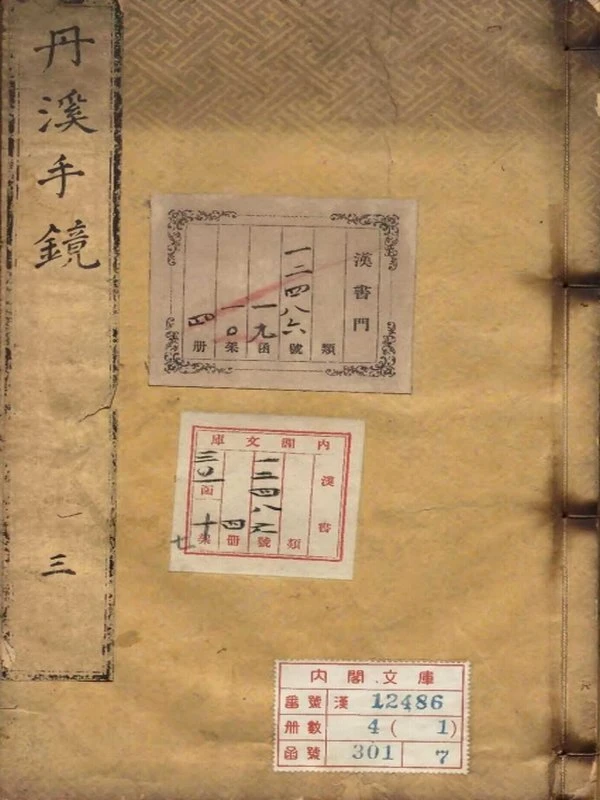 丹溪手鏡
一
三
漢書門
類
一二四八六號
一九函
一〇架
四册
内閣文庫
漢書
類
一二四八六號
四冊
三〇一函
十架
七
内閣文庫
番號 漢 12486
冊數 4 ( 1)
函號 301 7